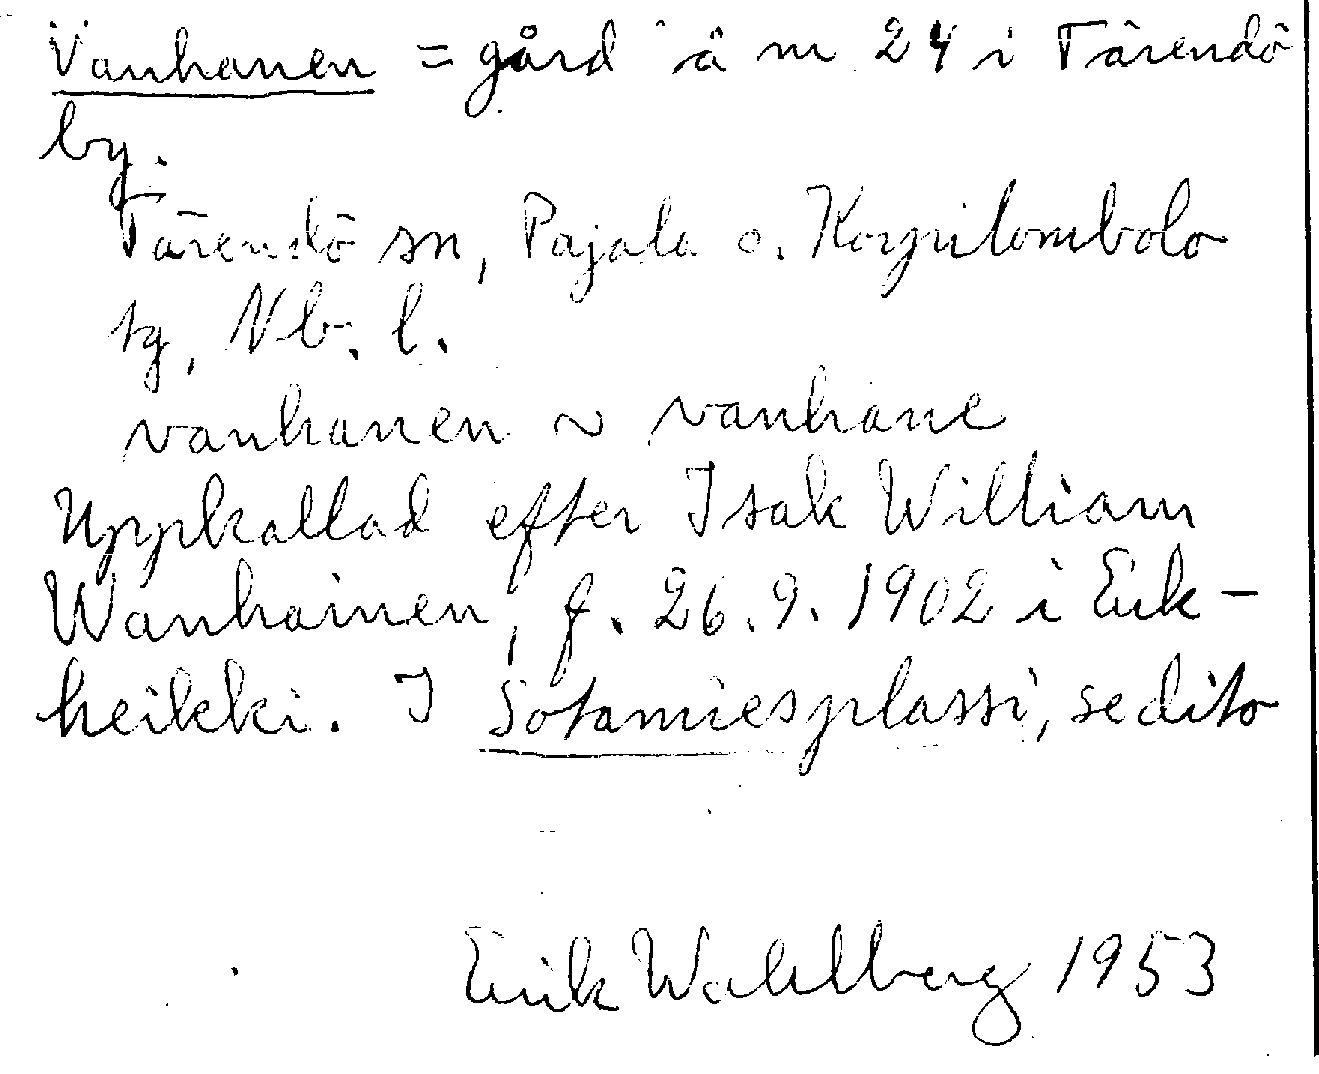 Vanhanen = gård å nr 24 i Tärendö
by.
Tärendö sn, Pajala o. Korpilombolo
tg, Nb. l.
vanhanen ~ vanhane
Uppkallad efter Isak William
Wanhainen, f. 26.9.1902 i Erik-
heikki. I Sotamiesplassi, se dito
Erik Wahlberg 1953